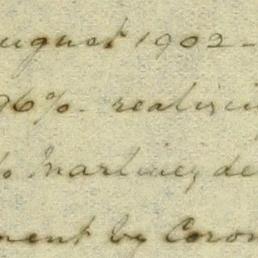 August 1902-
96%. realizing
% Martinez de
ment by Coron